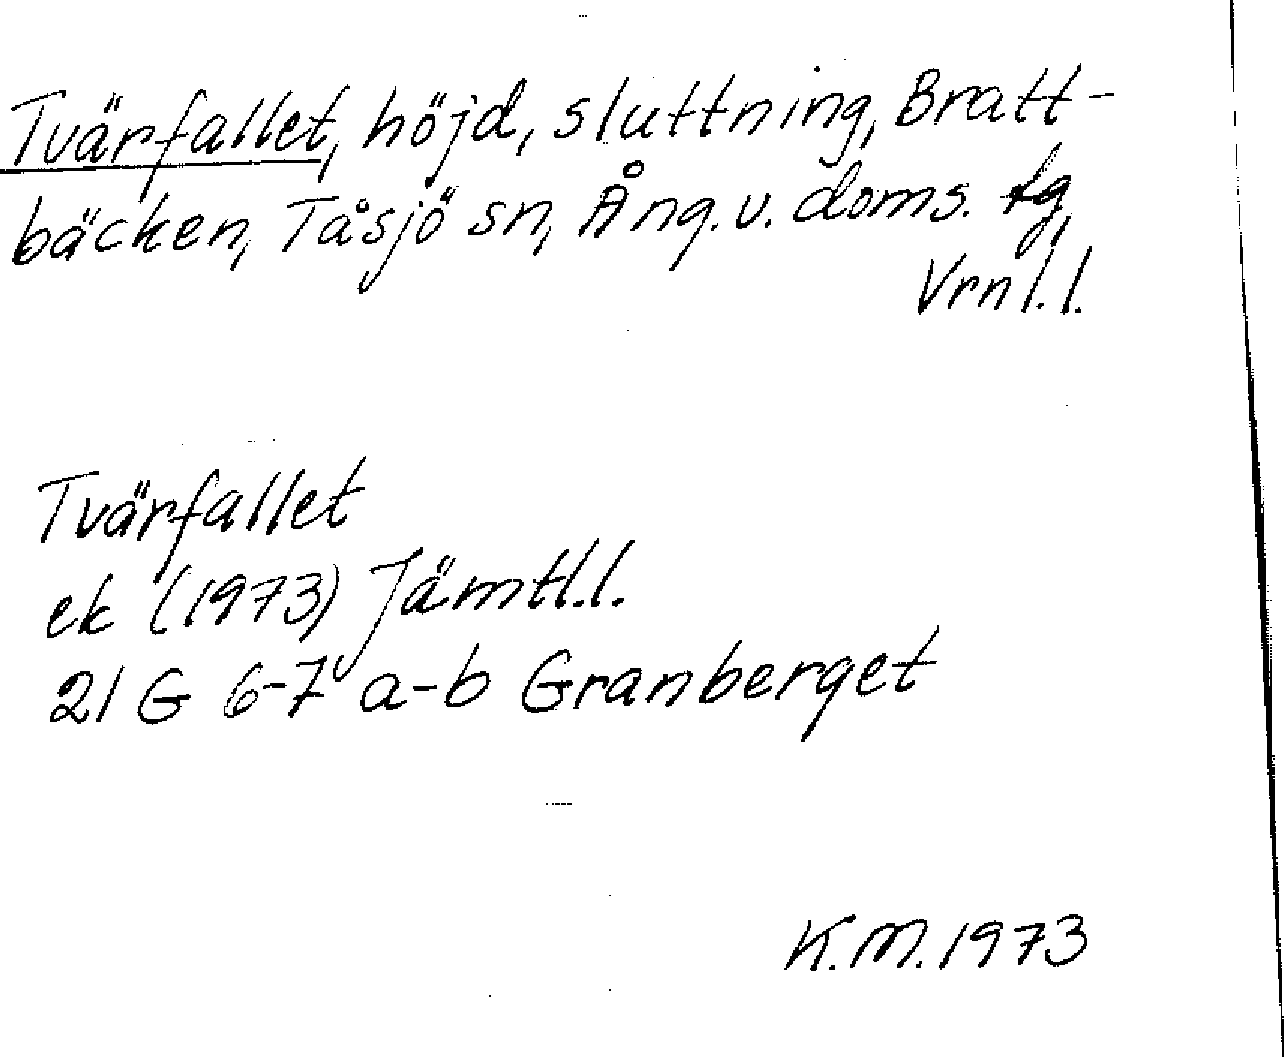 Tvärfallet, höjd, sluttning, Bratt-
bäcken, Tåsjö sn, Ång. v. doms. tg,
Vrnl.l.
Tvärfallet
ek (1973) Jämtl.l.
21 G 6-7 a-b Granberget
K.M. 1973